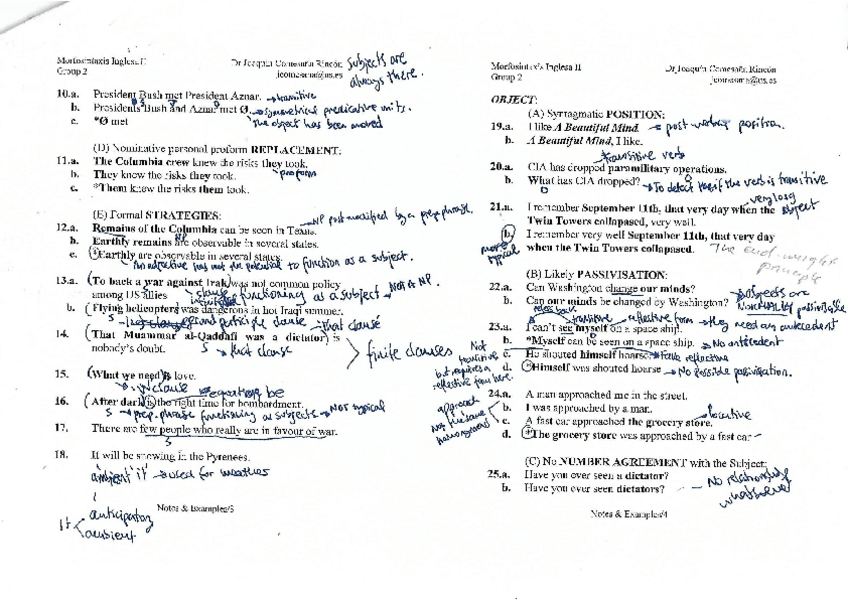 Morfosintaxis Inglesa II
Group 2
Dr Joaquín Comesaña Rincón
jcomesana@us.es
Subjects are
always there.
10.a. President Bush met President Aznar. → transitive
b. Presidents Bush and Aznar met Ø. → symmetrical predicative units.
c. *Ø met
The object has been moved
(D) Nominative personal proform REPLACEMENT:
11.a. The Columbia crew knew the risks they took.
b. They knew the risks they took.
proform
c. *Them knew the risks them took.
(E) Formal STRATEGIES:
→ NP post-modified by a prep. phrase.
12.a. Remains of the Columbia can be seen in Texas.
b. Earthly remains are observable in several states.
c. *Earthly are observable in several states.
An adjective has not the potential to function as a subject.
13.a. (To back a war against Irak) was not common policy
among US allies
clause functioning as a subject → Not a NP.
b. (Flying helicopters) was dangerous in hot Iraqi summer.
S participle clause
14. (That Muammar al-Qaddafi was a dictator) is
nobody's doubt.
S → that clause
finite clauses
15. (What we need) is love.
16. (After dark) is the right time for bombardment.
S → prep. phrase functioning as subject → Not typical
17. There are few people who really are in favour of war.
S
18. It will be snowing in the Pyrenees.
'ambient it' → used for weather
It
anticipatory
ambient
Notes & Examples/3
Morfosintaxis Inglesa II
Group 2
Dr Joaquín Comesaña Rincón
jcomesana@us.es
OBJECT:
(A) Syntagmatic POSITION:
19.a. I like A Beautiful Mind. → post-verbal position.
b. A Beautiful Mind, I like.
transitive verb
20.a. CIA has dropped paramilitary operations.
b. What has CIA dropped? → To detect if the verb is transitive
very long
object
21.a. I remember September 11th, that very day when the
Twin Towers collapased, very well.
b. I remember very well September 11th, that very day
when the Twin Towers collapased.
more typical
The end-weight
principle
(B) Likely PASSIVISATION:
22.a. Can Washington change our minds?
b. Can our minds be changed by Washington?
→ Objects are
NORMALLY passivisable
refers back
transitive → reflexive form → they need an antecedent
23.a. I can't see myself on a space ship.
b. *Myself can be seen on a space ship. → No antecedent
c. He shouted himself hoarse → fake reflective
d. *Himself was shouted hoarse → No possible passivisation.
Not
transitive
but requires a
reflective form here.
24.a. A man approached me in the street.
b. I was approached by a man.
c. A fast car approached the grocery store.
→ locative
d. *The grocery store was approached by a fast car
approach
(C) No NUMBER AGREEMENT with the Subject:
25.a. Have you ever seen a dictator?
b. Have you ever seen dictators?
→ No relationship
whatsoever
Notes & Examples/4